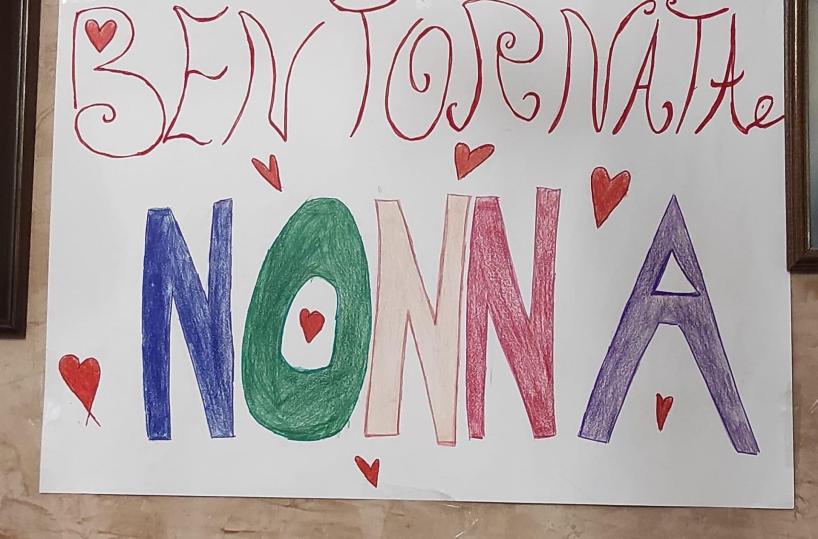 BENTORNATA
NONNA